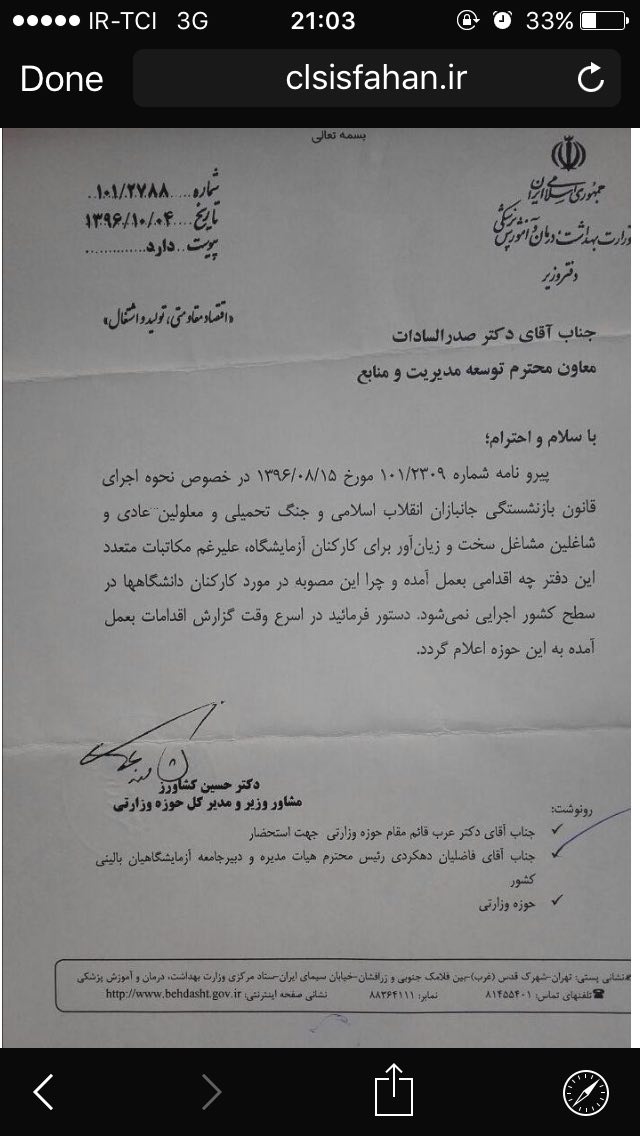 IR-TCI 3G 21:03 33%
Done clsisfahan.ir
بسمه تعالی
جمهوری اسلامی ایران
وزارت بهداشت، درمان و آموزش پزشکی
دفتر وزیر
شماره ....۱۰۱/۲۷۸۸.
تاریخ ۱۳۹۶/۱۰/۰۴
پیوست ..دارد.............
«اقتصاد مقاومتی، تولید و اشتغال»
جناب آقای دکتر صدرالسادات
معاون محترم توسعه مدیریت و منابع
با سلام و احترام؛
پیرو نامه شماره ۱۰۱/۲۳۰۹ مورخ ۱۳۹۶/۰۸/۱۵ در خصوص نحوه اجرای
قانون بازنشستگی جانبازان انقلاب اسلامی و جنگ تحمیلی و معلولین عادی و
شاغلین مشاغل سخت و زیان‌آور برای کارکنان آزمایشگاه، علیرغم مکاتبات متعدد
این دفتر چه اقدامی بعمل آمده و چرا این مصوبه در مورد کارکنان دانشگاهها در
سطح کشور اجرایی نمی‌شود. دستور فرمائید در اسرع وقت گزارش اقدامات بعمل
آمده به این حوزه اعلام گردد.
دکتر حسین کشاورز
مشاور وزیر و مدیر کل حوزه وزارتی
رونوشت:
جناب آقای دکتر عرب قائم مقام حوزه وزارتی جهت استحضار
جناب آقای فاضلیان دهکردی رئیس محترم هیات مدیره و دبیرجامعه آزمایشگاهیان بالینی
کشور
حوزه وزارتی
نشانی پستی: تهران-شهرک قدس (غرب)-بین فلامک جنوبی و زرافشان-خیابان سیمای ایران-ستاد مرکزی وزارت بهداشت، درمان و آموزش پزشکی
تلفنهای تماس: ۸۱۴۵۵۴۰۱ نمابر: ۸۸۳۶۴۱۱۱ نشانی صفحه اینترنتی: http://www.behdasht.gov.ir